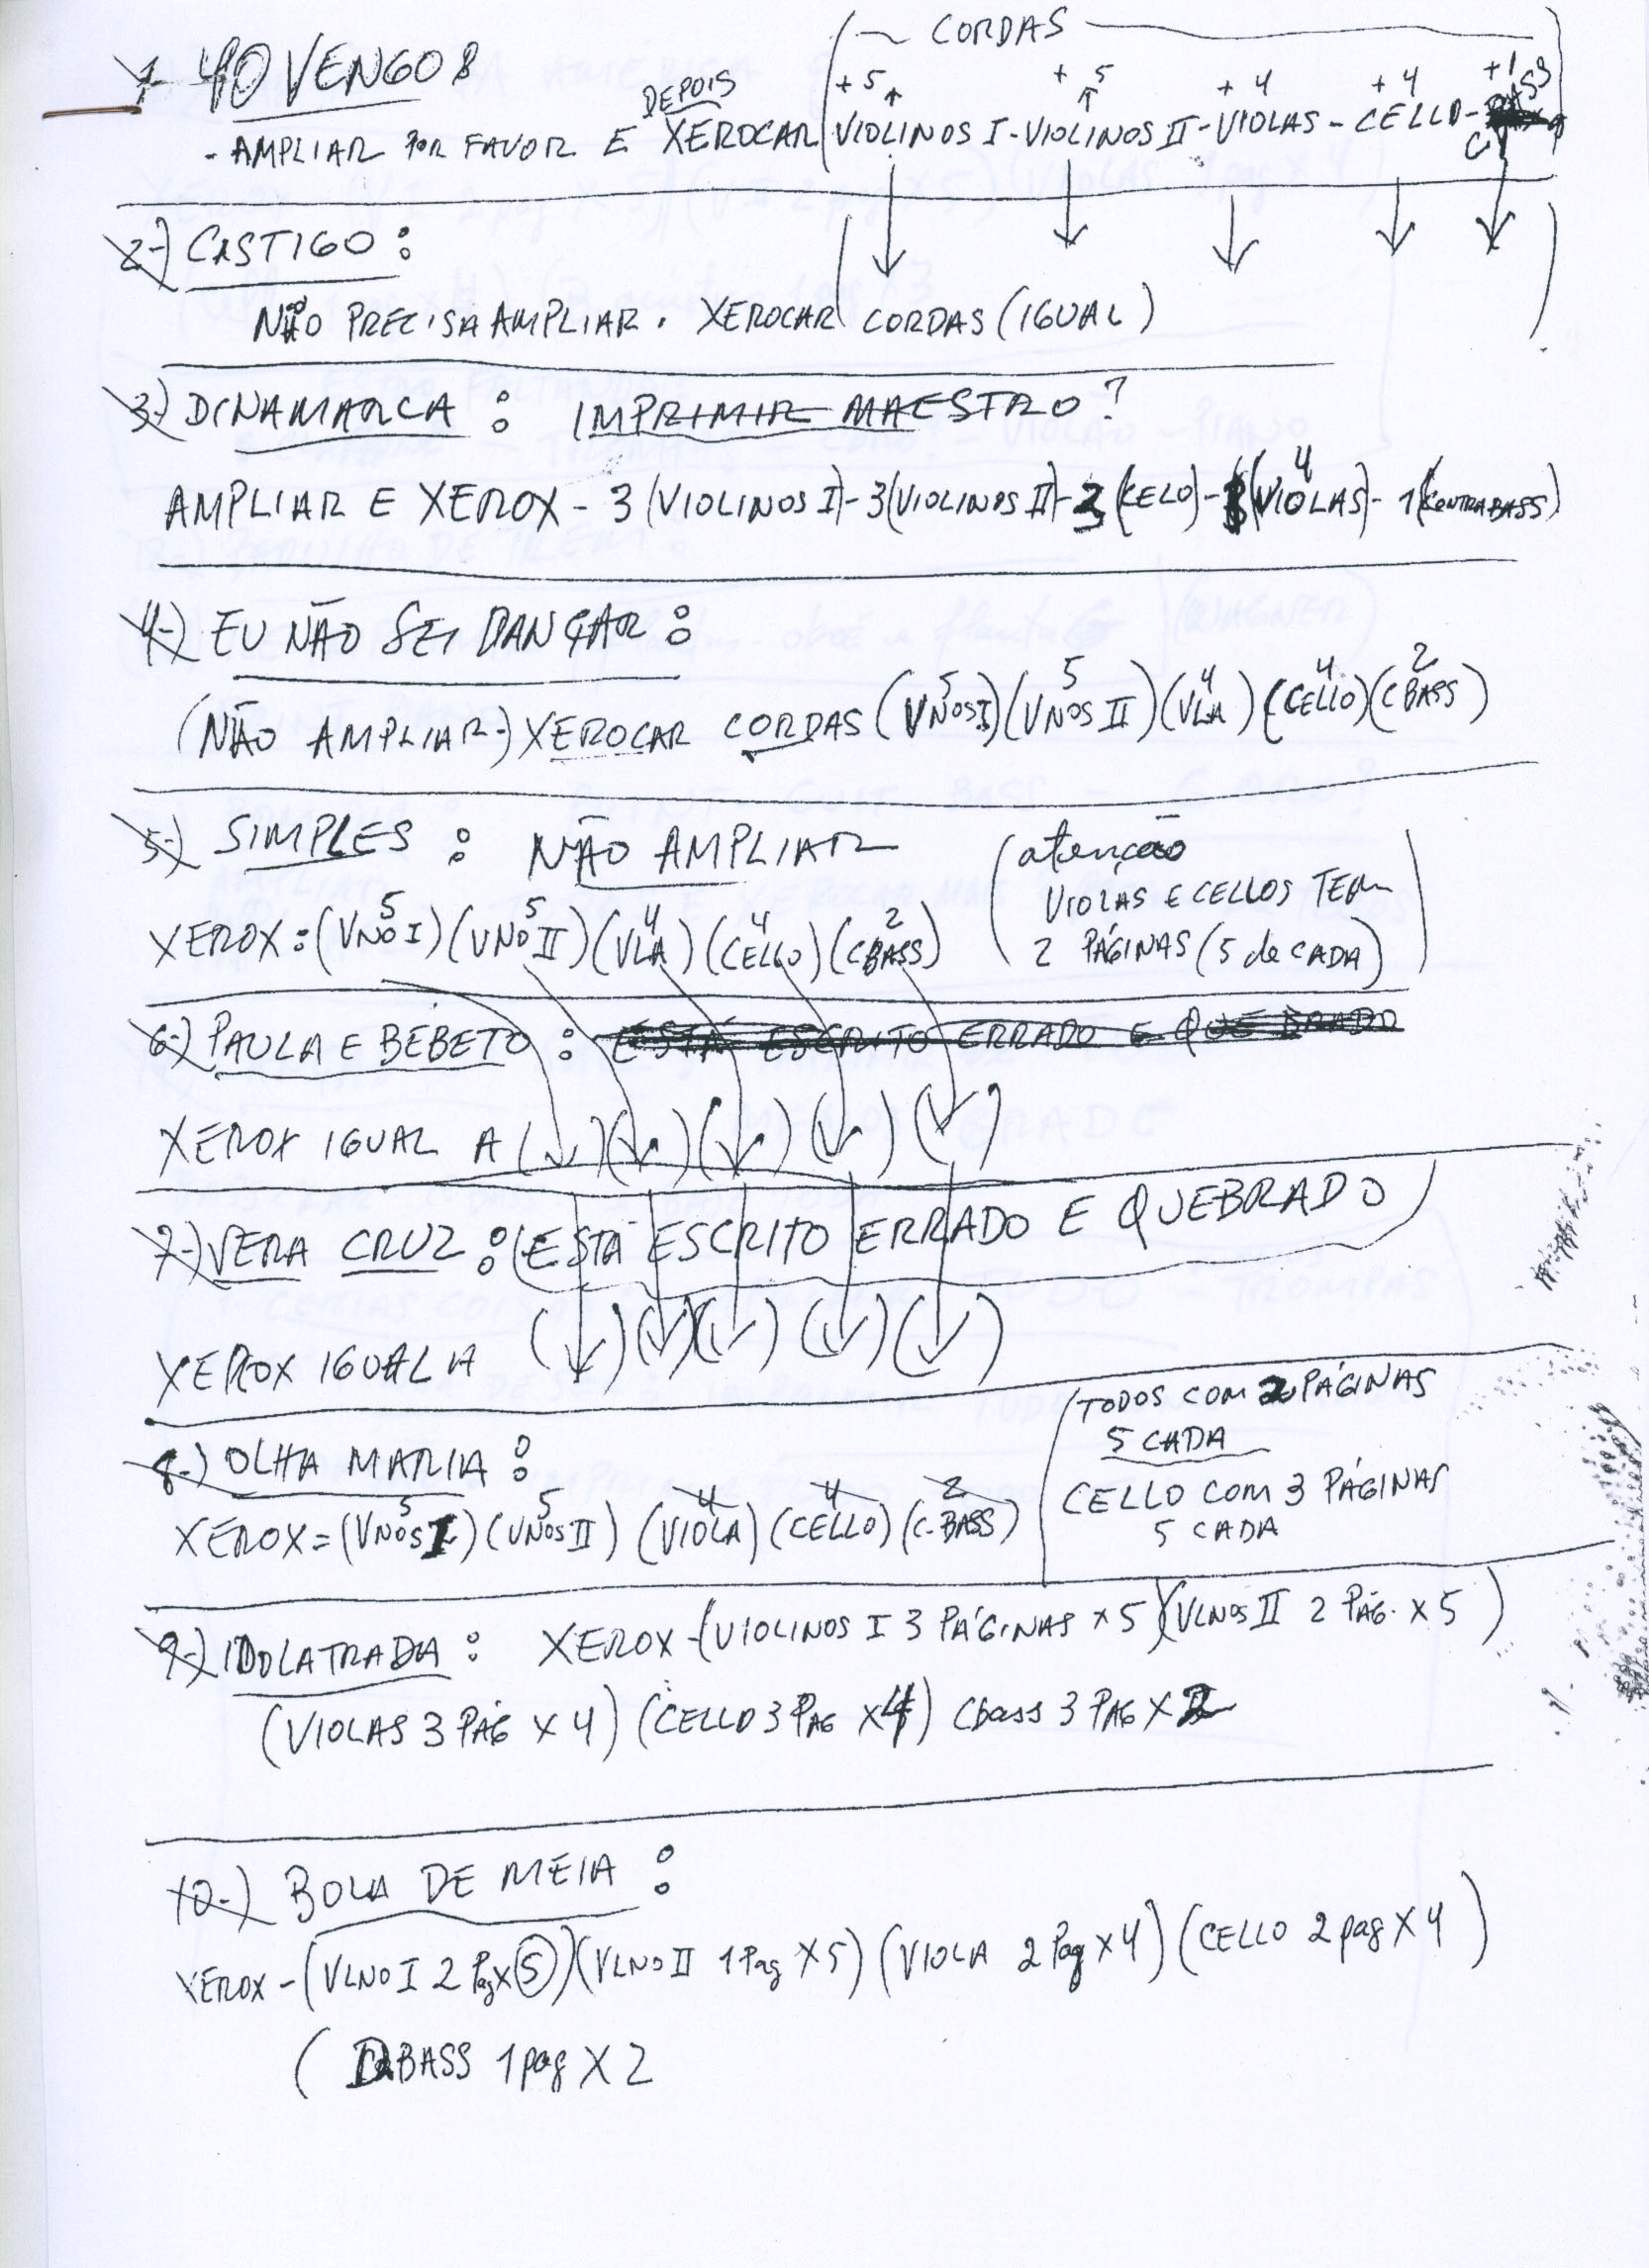 CORDAS
1- YO VENGO 8
+5 +5 +4 +4 +1
DEPOIS
- AMPLIAR POR FAVOR E XEROCAR (VIOLINOS I - VIOLINOS II - VIOLAS - CELLO - C BASS
2-) CASTIGO:
NÃO PRECISA AMPLIAR. XEROCAR CORDAS (IGUAL)
3-) DINAMARCA: IMPRIMIR MAESTRO?
AMPLIAR E XEROX - 3 (VIOLINOS I) - 3 (VIOLINOS II) - 3 (CELO) - 4 (VIOLAS) - 1 (CONTRABASS)
4-) EU NÃO SEI DANÇAR:
5 5 4 4 2
(NÃO AMPLIAR-) XEROCAR CORDAS (VNOS I) (VNOS II) (VLA) (CELLO) (CBASS)
5-) SIMPLES: NÃO AMPLIAR
(atenção
VIOLAS E CELLOS TEM
2 PÁGINAS (5 de CADA)
5 5 4 4 2
XEROX: (VNO I) (VNO II) (VLA) (CELLO) (CBASS)
6-) PAULA E BEBETO: ESTÁ ESCRITO ERRADO E QUEBRADO
XEROX IGUAL A ( ) ( ) ( ) ( ) ( )
7-) VERA CRUZ: (ESTÁ ESCRITO ERRADO E QUEBRADO)
XEROX IGUAL A ( ) ( ) ( ) ( ) ( )
8-) OLHA MARIA:
5 5 4 4 2
XEROX = (VNOS I) (VNOS II) (VIOLA) (CELLO) (C-BASS)
TODOS COM 2 PÁGINAS
5 CADA
CELLO COM 3 PÁGINAS
5 CADA
9-) IDOLATRADA: XEROX - (VIOLINOS I 3 PÁGINAS x 5) (VLNOS II 2 PÁG. x 5)
(VIOLAS 3 PÁG x 4) (CELLO 3 PAG x 4) Cbass 3 PAG x 2
10-) BOLA DE MEIA:
XEROX - (VLNO I 2 Pag x 5) (VLNO II 1 Pag x 5) (VIOLA 2 Pag x 4) (CELLO 2 pag x 4)
( BASS 1 pag x 2